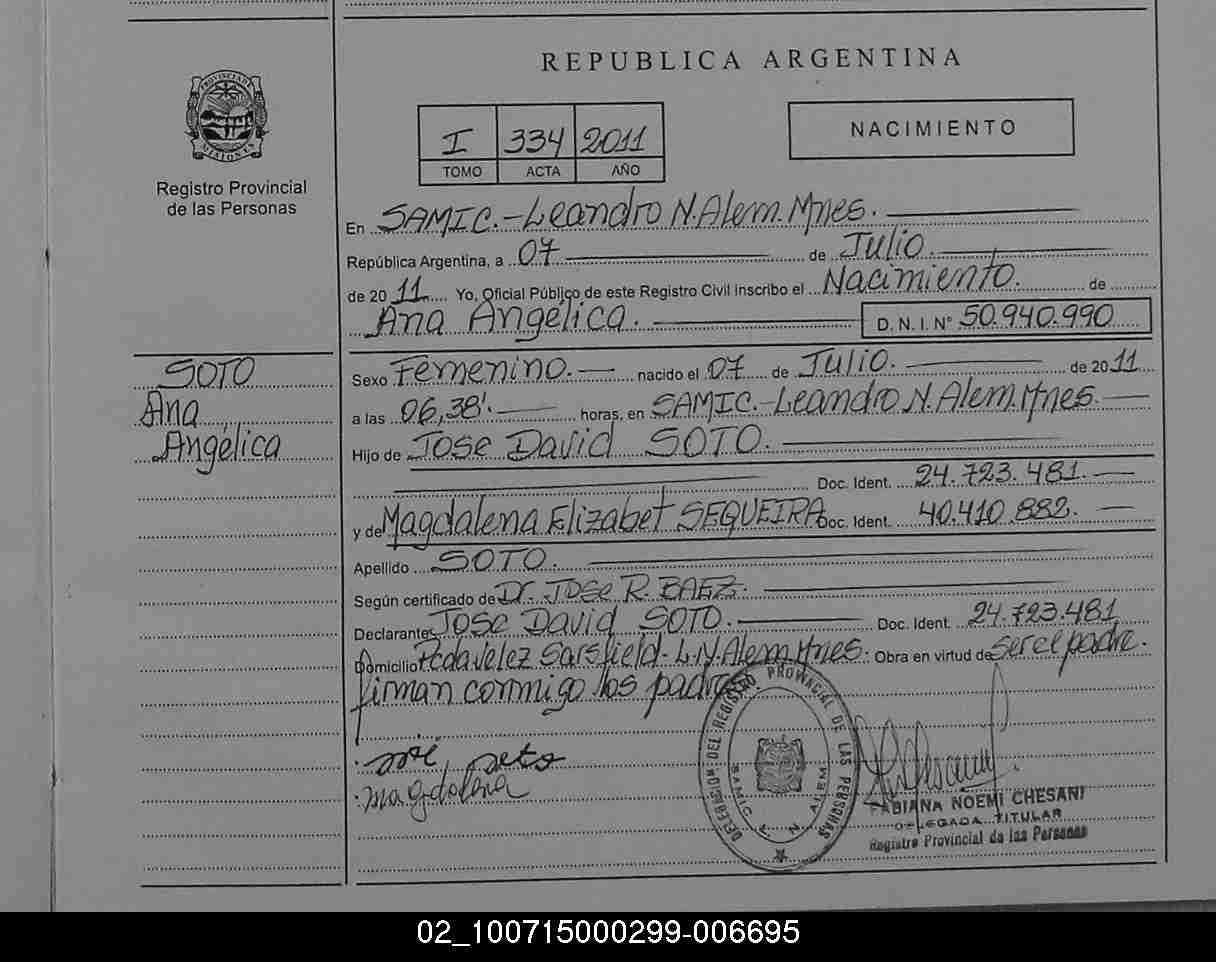 REPUBLICA ARGENTINA
PROVINCIA DE MISIONES
Registro Provincial
de las Personas
I 334 2011
TOMO ACTA AÑO
NACIMIENTO
En SAMIC.-Leandro N. Alem. Mnes.
República Argentina, a 07 de Julio
de 20 11 Yo, Oficial Público de este Registro Civil inscribo el Nacimiento. de
Ana Angélica. D. N. I. N° 50.940.990
SOTO
Ana
Angélica
Sexo Femenino. nacido el 07 de Julio. de 20 11
a las 06,38'. horas, en SAMIC.-Leandro N. Alem. Mnes.
Hijo de Jose David SOTO.
Doc. Ident. 24.723.481.
y de Magdalena Elizabet SEQUEIRA Doc. Ident. 40.410.882.
Apellido SOTO.
Según certificado de Dr. Jose R. BAEZ.
Declarante Jose David SOTO. Doc. Ident. 24.723.481
Domicilio Velez Sarsfield - L.N. Alem Mnes. Obra en virtud de ser el padre.
firman conmigo los padres.
soto
magdalena
DELEGACION DEL REGISTRO PROVINCIAL DE LAS PERSONAS
SAMIC L. N. ALEM
FABIANA NOEMI CHESANI
DELEGADA TITULAR
Registro Provincial de las Personas
02_100715000299-006695